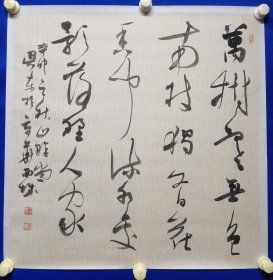 萬樹寒無色
南枝獨有花
香聞流水處
影落野人家
辛卯之秋